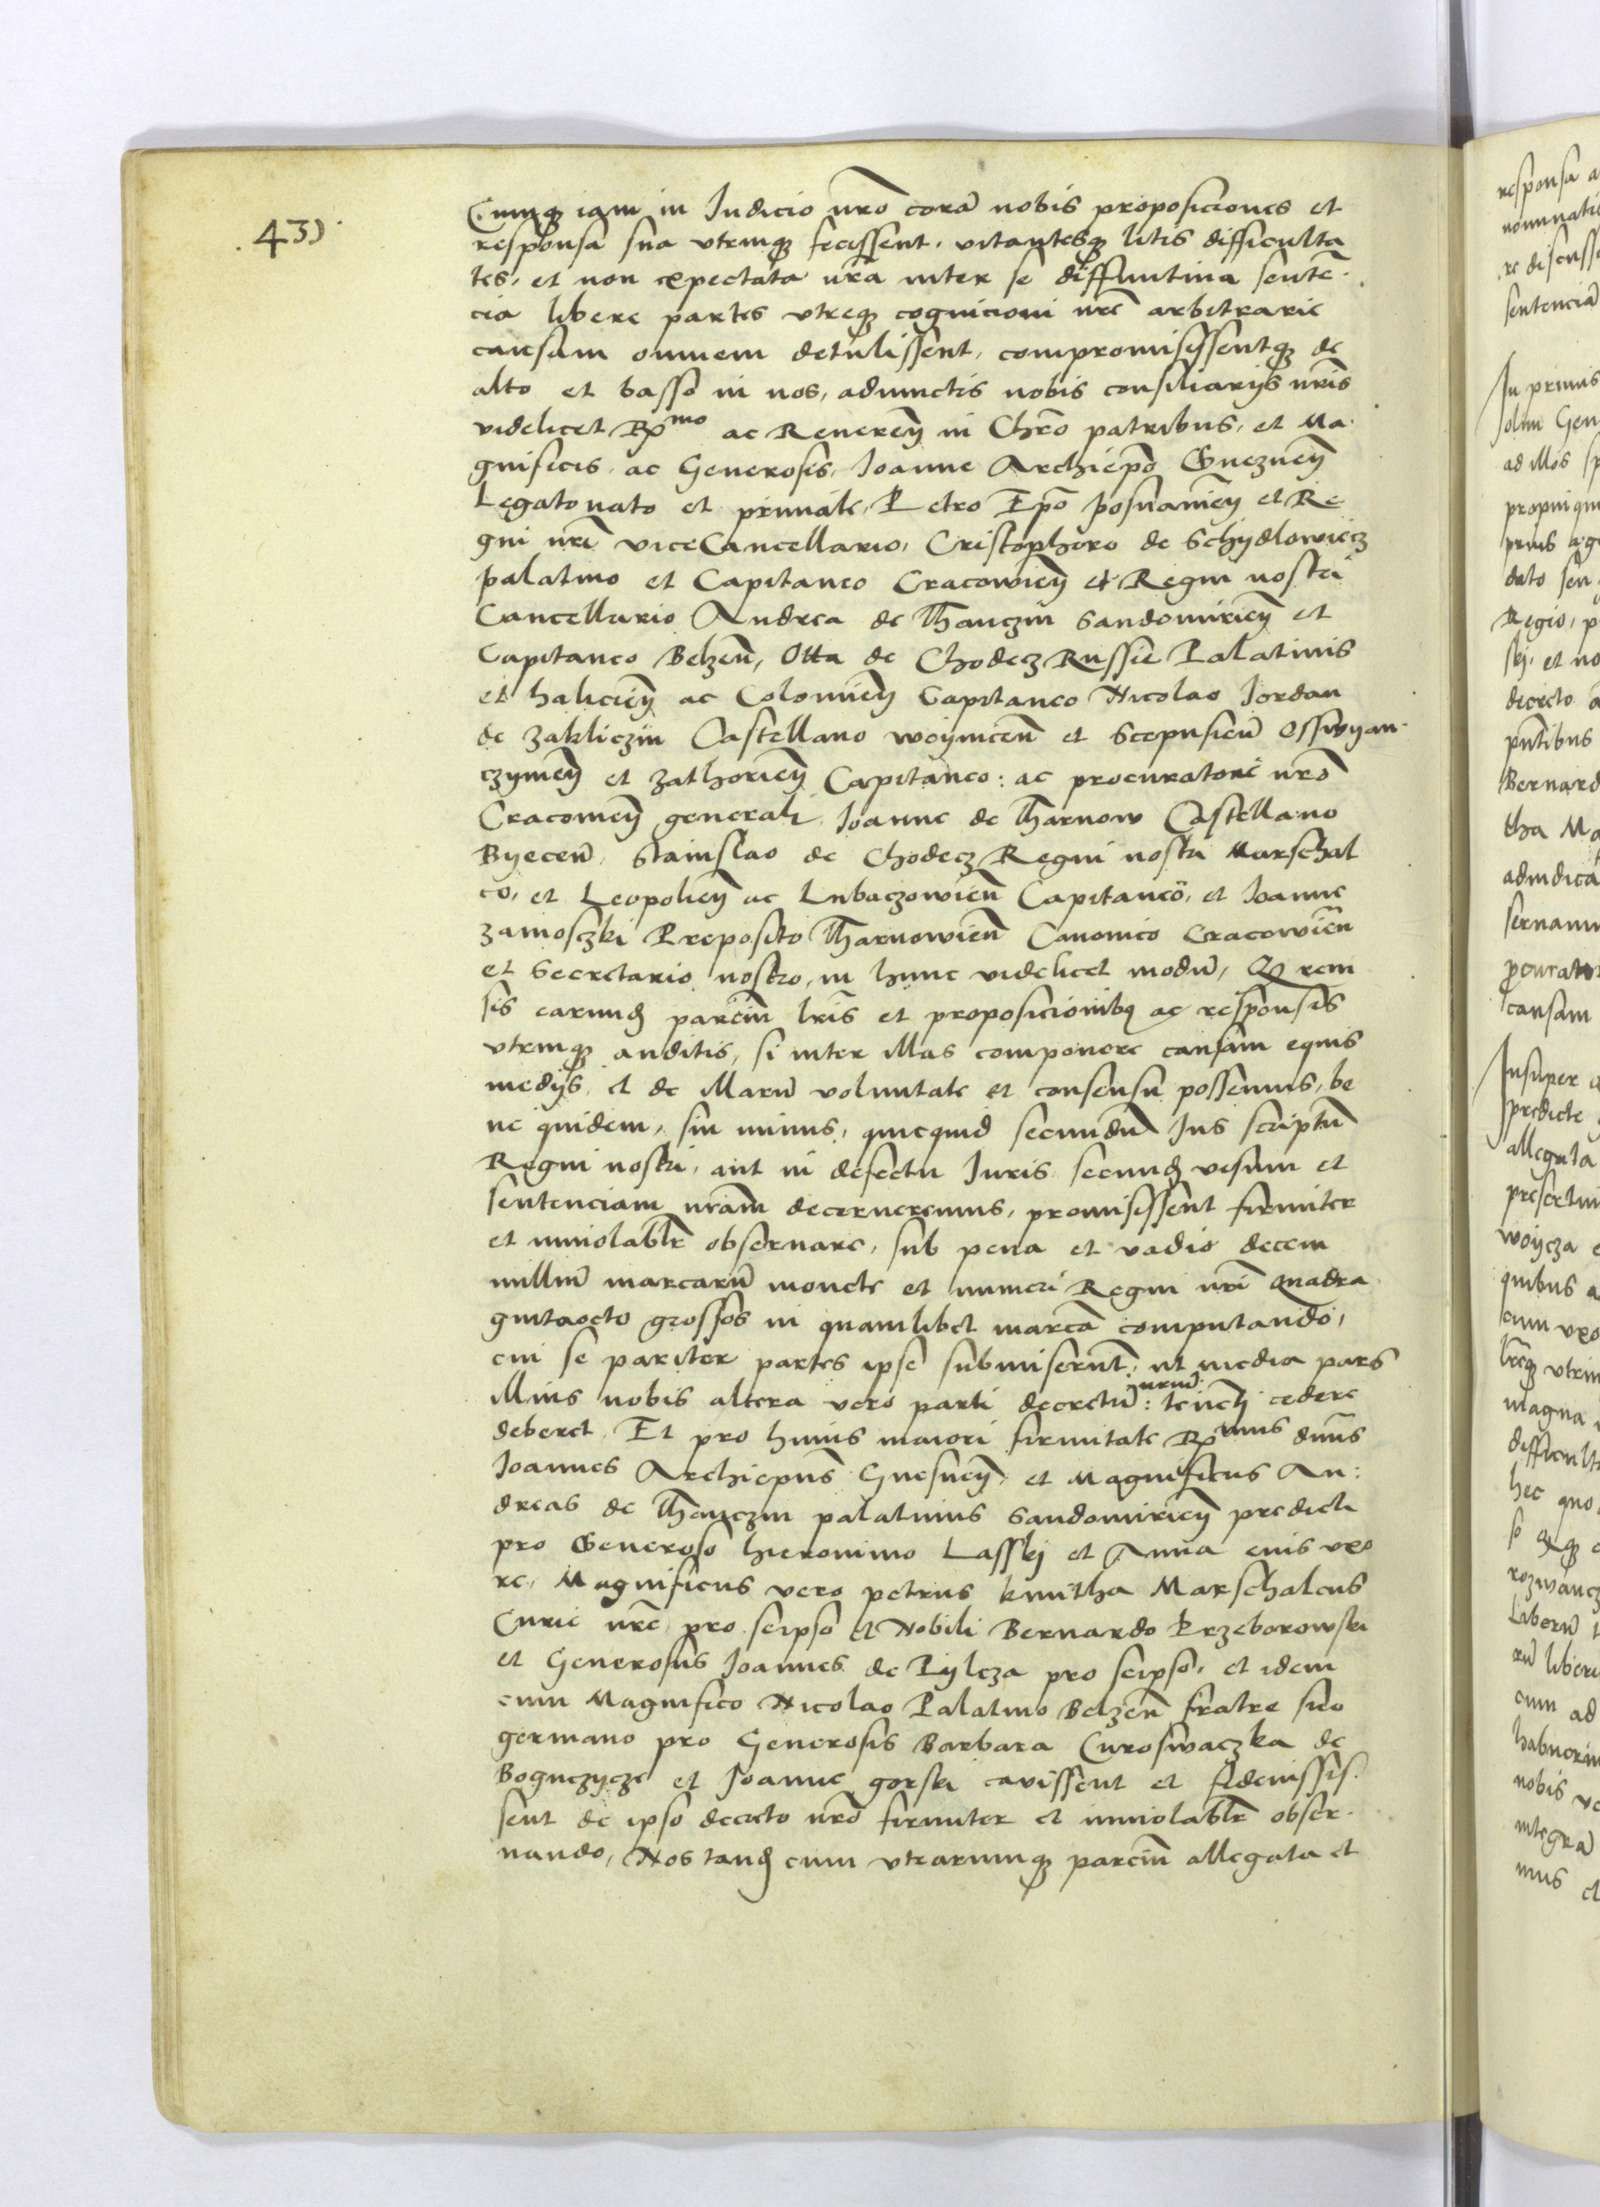 .43).
Cumq iam in Iudicio nro corā nobis proposiciones et
responsa sua vtrinq fecissent, vitantesq litis difficulta
tes, et non expectata nra inter se diffinitiua senteñ
cia libere partes vtreq cognicioni nre arbitrarie
causam omnem detulissent, compromisissentq de
alto et basso in nos, adiunctis nobis consiliarijs nris
videlicet Rmo ac Reueren in Chro patribus, et Ma
gnificis ac Generosis, Ioanne Archiepo Gneznen
Legato nato et primate, Petro Epo Posnanien et Re
gni nri viceCancellario, Cristophoro de Schydlowiecz
palatino et Capitaneo Cracowien et Regni nostri
Cancellario Andrea de Thanczin Sandomirien et
Capitaneo Belzen, Otta de Chodecz Russie Palatinis
et halicien ac Colomien Capitaneo Nicolao Iordan
de zakliczin Castellano woynicen et Scepusien Osswyan
czymen et zathorien Capitaneo: ac procuratore nro
Cracowien generali Ioanne de Tharnow Castellano
Byecen, Stanislao de Chodecz Regni nostri Marschal
co, et Leopolien ac Lubaczowien Capitaneo, et Ioanne
zamoszki Preposito Tharnowien Canonico Cracowien
et Secretario nostro, in hunc videlicet modū, Q rem
sis earund parciū lris et proposicionibq ac responsis
vtrinq auditis, si inter illas componere causam equis
medijs et de illarū voluntate et consensu possemus, be
ne quidem, sin minus, quicquid secundū Ius scriptū
Regni nostri, aut in defectu Iuris secund visum et
sentenciam nram decerneremus, promisissent firmiter
et inuiolablr obseruare, sub pena et vadio decem
milliū marcarū monete et numeri Regni nri Quadra
gintaocto grossos in quamlibet marcā computando,
cui se pariter partes ipse submiserunt, ut media pars
illius nobis altera vero parti decretū nrum: tenen cedere
deberet. Et pro huius maiori firmitate Rmus dnus
Ioannes Archiepus Gnesnen et Magnificus An:
dreas de Thenczin palatinus Sandomirien predicti
pro Generoso hieronimo Lasski et Anna eius vxo
re, Magnificus vero petrus kmitha Marschalcus
Curie nre pro seipso et Nobili Bernardo Przeborowski
et Generosus Ioannes de Pylcza pro seipso, et idem
cum Magnifico Nicolao Palatino Belzen fratre suo
germano pro Generosis Barbara Curoswaczka de
Boguczycze et Ioanne gorski cavissent et fideiussis
sent de ipso decreto nro firmiter et inuiolablr obser
uando, Nos tand cum vtrarumq parciū allegata et